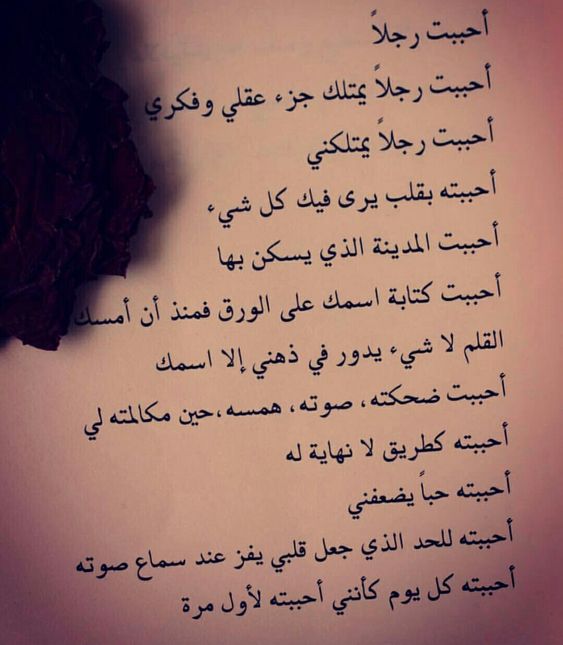 أحببت رجلاً
أحببت رجلاً يمتلك جزء عقلي وفكري
أحببت رجلاً يمتلكني
أحببته بقلب يرى فيك كل شيء
أحببت المدينة الذي يسكن بها
أحببت كتابة اسمك على الورق فمنذ أن أمسك
القلم لا شيء يدور في ذهني إلا اسمك
أحببت ضحكته، صوته، همسه،حين مكالمته لي
أحببته كطريق لا نهاية له
أحببته حباً يضعفني
أحببته للحد الذي جعل قلبي يفز عند سماع صوته
أحببته كل يوم كأنني أحببته لأول مرة